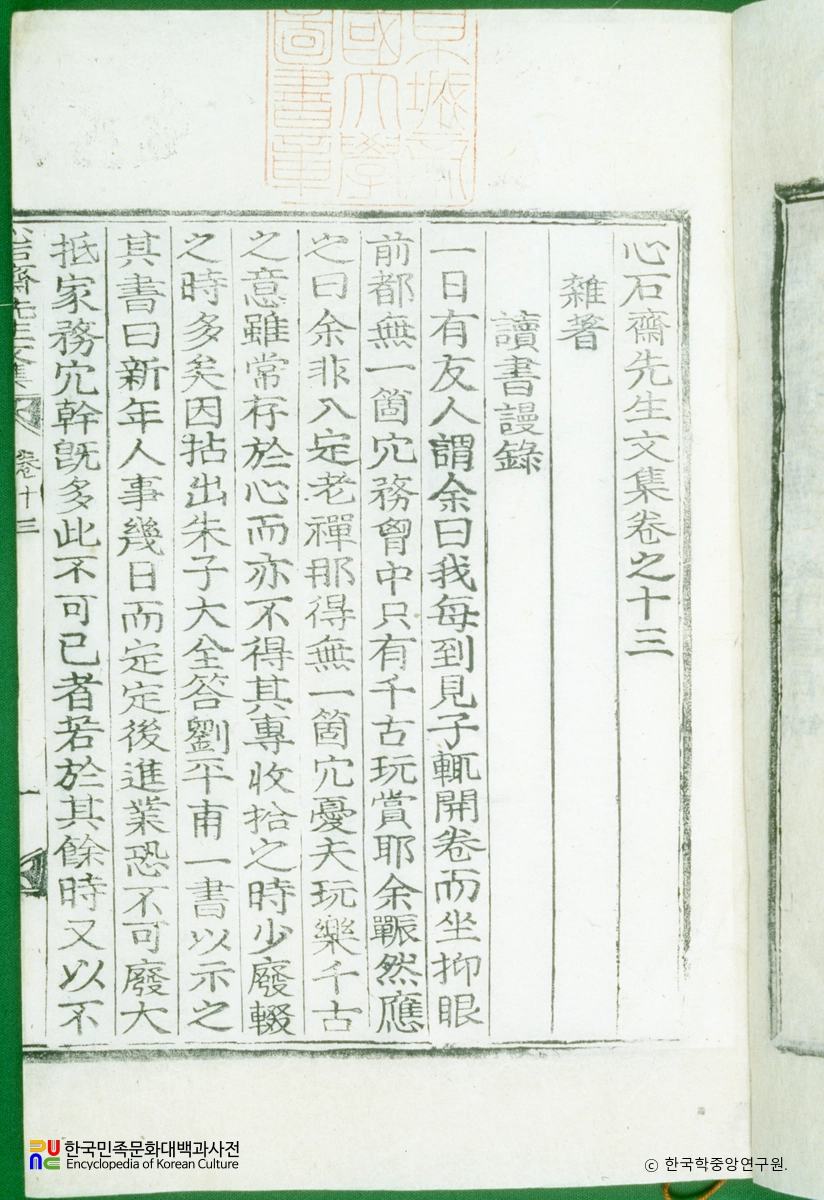 心石齋先生文集卷之十三
雜著
讀書謾錄
一日有友人謂余曰我每到見子輒開卷而坐抑眼
前都無一箇冗務胷中只有千古玩賞耶余囅然應
之曰余非入定老禪那得無一箇冗憂夫玩樂千古
之意雖常存於心而亦不得其專收拾之時少廢輟
之時多矣因拈出朱子大全答劉平甫一書以示之
其書曰新年人事幾日而定定後進業恐不可廢大
抵家務冗幹旣多此不可已者若於其餘時又以不
心石齋先生文集 卷十三 一
한국민족문화대백과사전
Encyclopedia of Korean Culture
ⓒ 한국학중앙연구원.